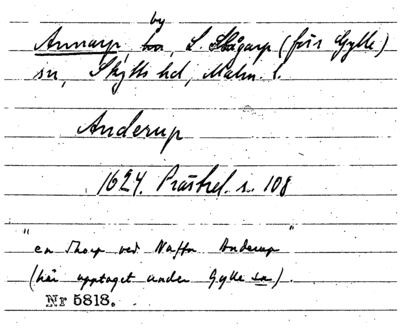 by
Annarp, L. Slågarp (förr Gylle)
sn, Skytts hd, Malm. l.
Anderup
1624. Prästrel. s. 108
"en Thorp ved Naffn Anderup"
(här upptaget under Gylle sn).
Nr 5818.